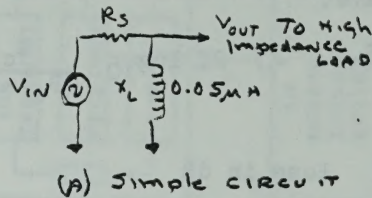 Rs
VOUT TO HIGH
IMPEDANCE
LOAD
VIN
XL
0.05µH
(A) SIMPLE CIRCUIT